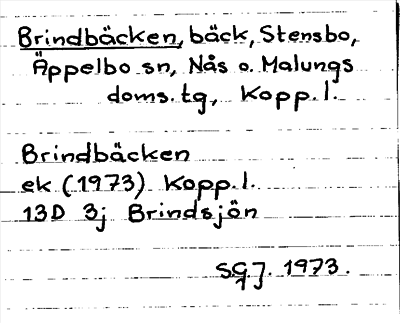 Brindbäcken, bäck, Stensbo,
Äppelbo sn, Nås o. Malungs
doms.tg, Kopp.l.
Brindbäcken
ek (1973) Kopp.l.
13D 3j Brindsjön
SGJ. 1973.